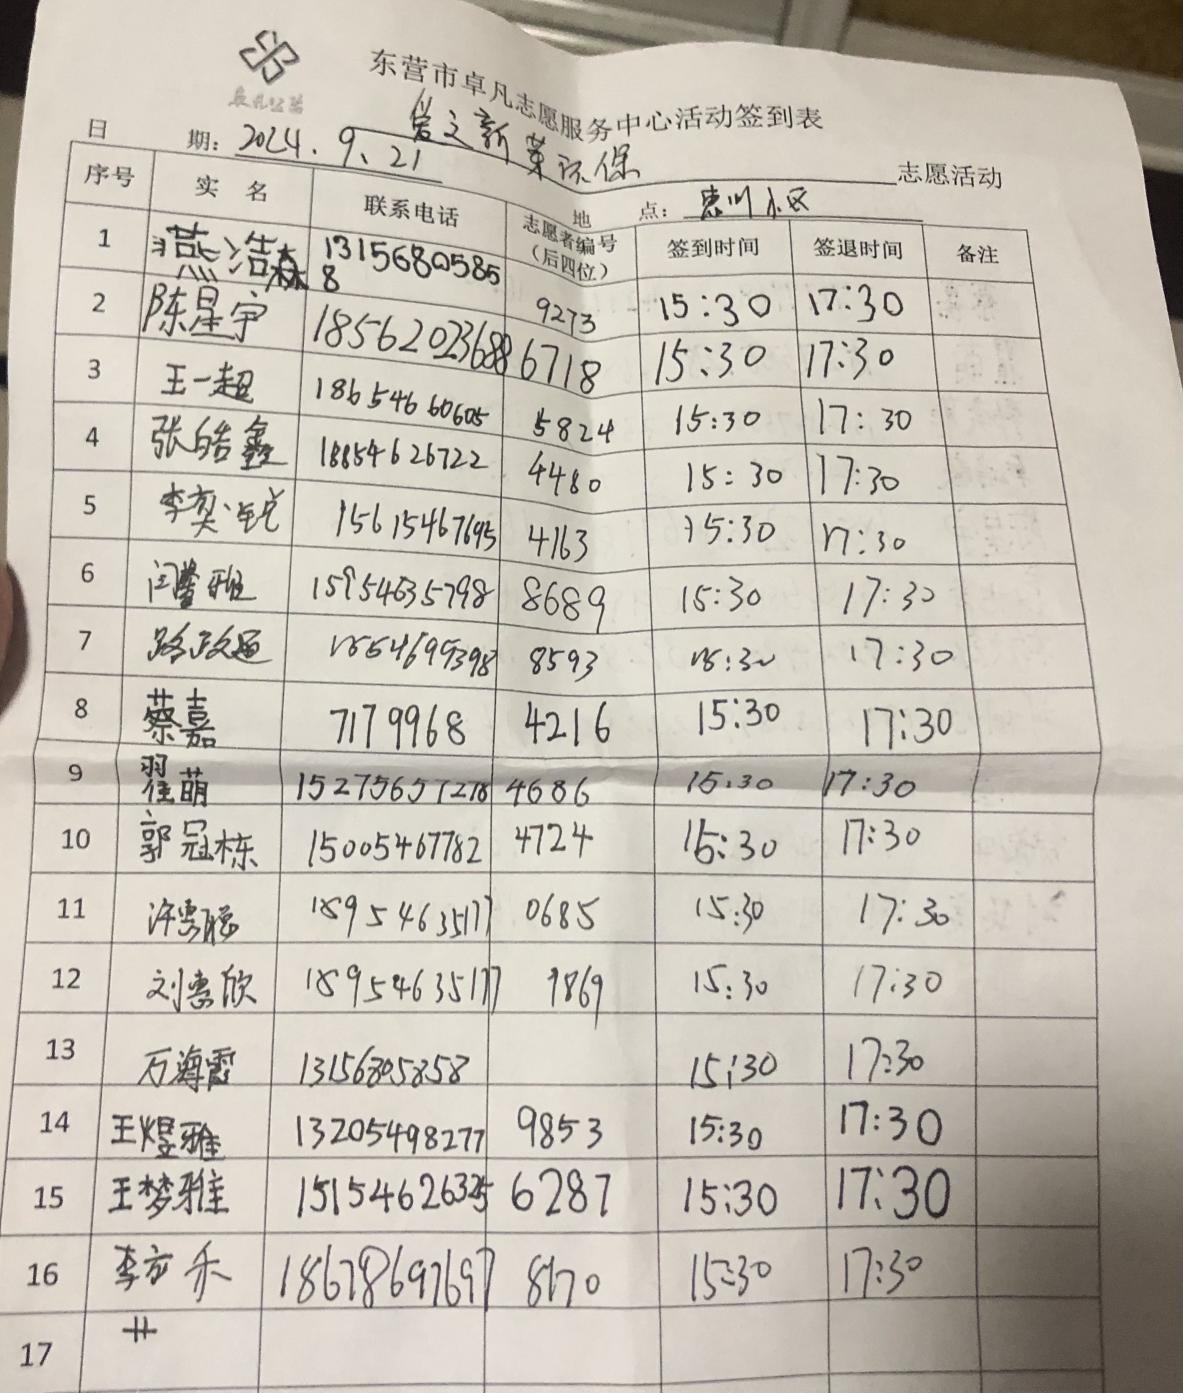 东营市卓凡志愿服务中心活动签到表
日 期: 2024.9.21 爱之新 环保 志愿活动
地 点: 惠州小区
序号 实 名 联系电话 志愿者编号(后四位) 签到时间 签退时间 备注
1 燕浩森 13156805858 9273 15:30 17:30
2 陈星宇 18562023688 6718 15:30 17:30
3 王一超 18654660605 5824 15:30 17:30
4 张皓鑫 18854626722 4480 15:30 17:30
5 李 锐 15615467695 4163 15:30 17:30
6 闫 15954635798 8689 15:30 17:30
7 路政通 15554699398 8593 15:30 17:30
8 蔡嘉 7179968 4216 15:30 17:30
9 翟萌 15275657278 4686 15:30 17:30
10 郭冠栋 15005467782 4724 15:30 17:30
11 许 18954635177 0685 15:30 17:30
12 刘惠欣 18954635177 1869 15:30 17:30
13 万海霞 13156805858 15:30 17:30
14 王煜雅 13205498277 9853 15:30 17:30
15 王梦雅 15154626325 6287 15:30 17:30
16 李 18678697697 8170 15:30 17:30
17